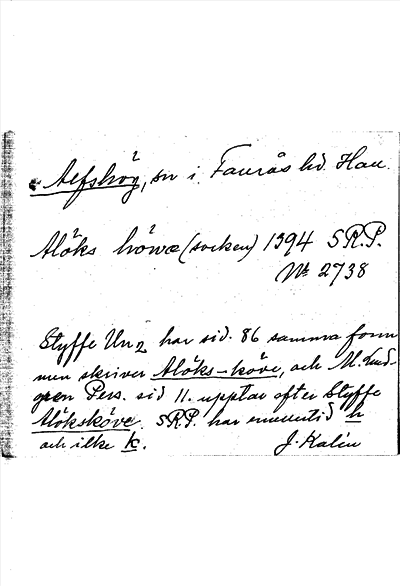 Alfshög, sn i. Faurås hd. Hall.
Alöks höwæ (socken) 1394 S.R.P.
№ 2738
Styffe Un2 har sid. 86 samma form
men skriver Alöks-köve, och M. Lund-
gren Pers. sid 11. upptar efter Styffe
Alöksköve. S.R.P. har emellertid h
och icke k. J. Kalén